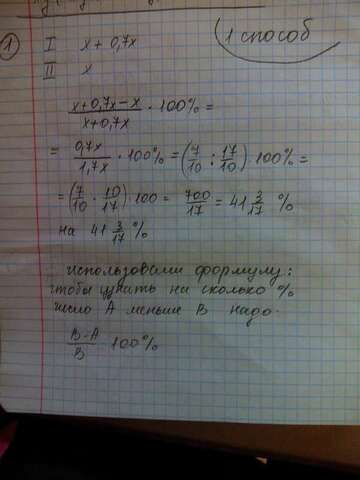 1 способ
1 I x + 0,7x
II x
x+0,7x-x / x+0,7x · 100% =
= 0,7x / 1,7x · 100% = (7/10 : 17/10) · 100% =
= (7/10 · 10/17) · 100 = 700/17 = 41 3/17 %
на 41 3/17 %
использовали формулу:
чтобы узнать на сколько %
число A меньше B надо.
B-A / B 100%